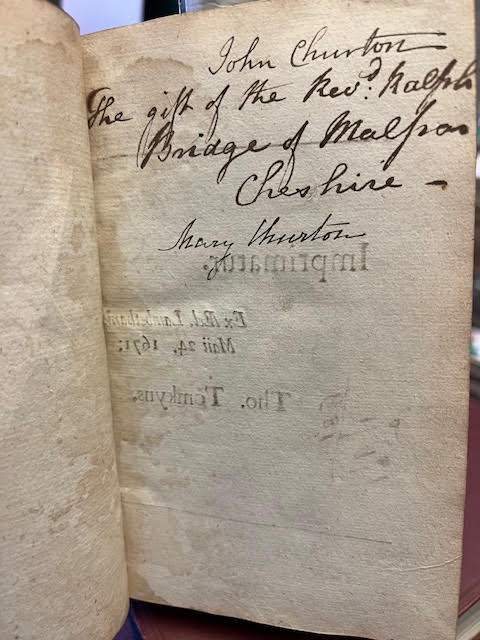 John Churton
The gift of the Revd. Ralph
Bridge of Malpas
Cheshire –
Mary Churton
Imprimatur.
Ex Æd. Lambethani
Maii 24, 1671;
Tho. Tomkyns.